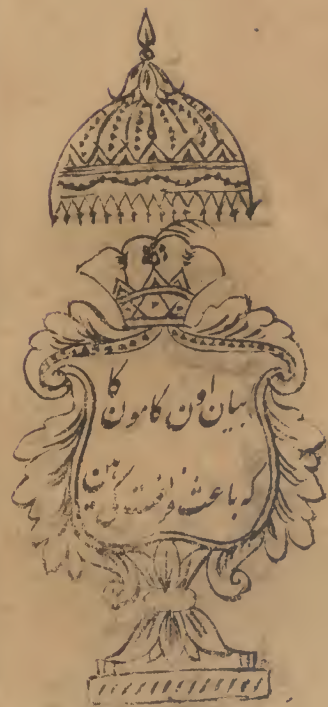 بیان اون کامون کا
که باعث ہین